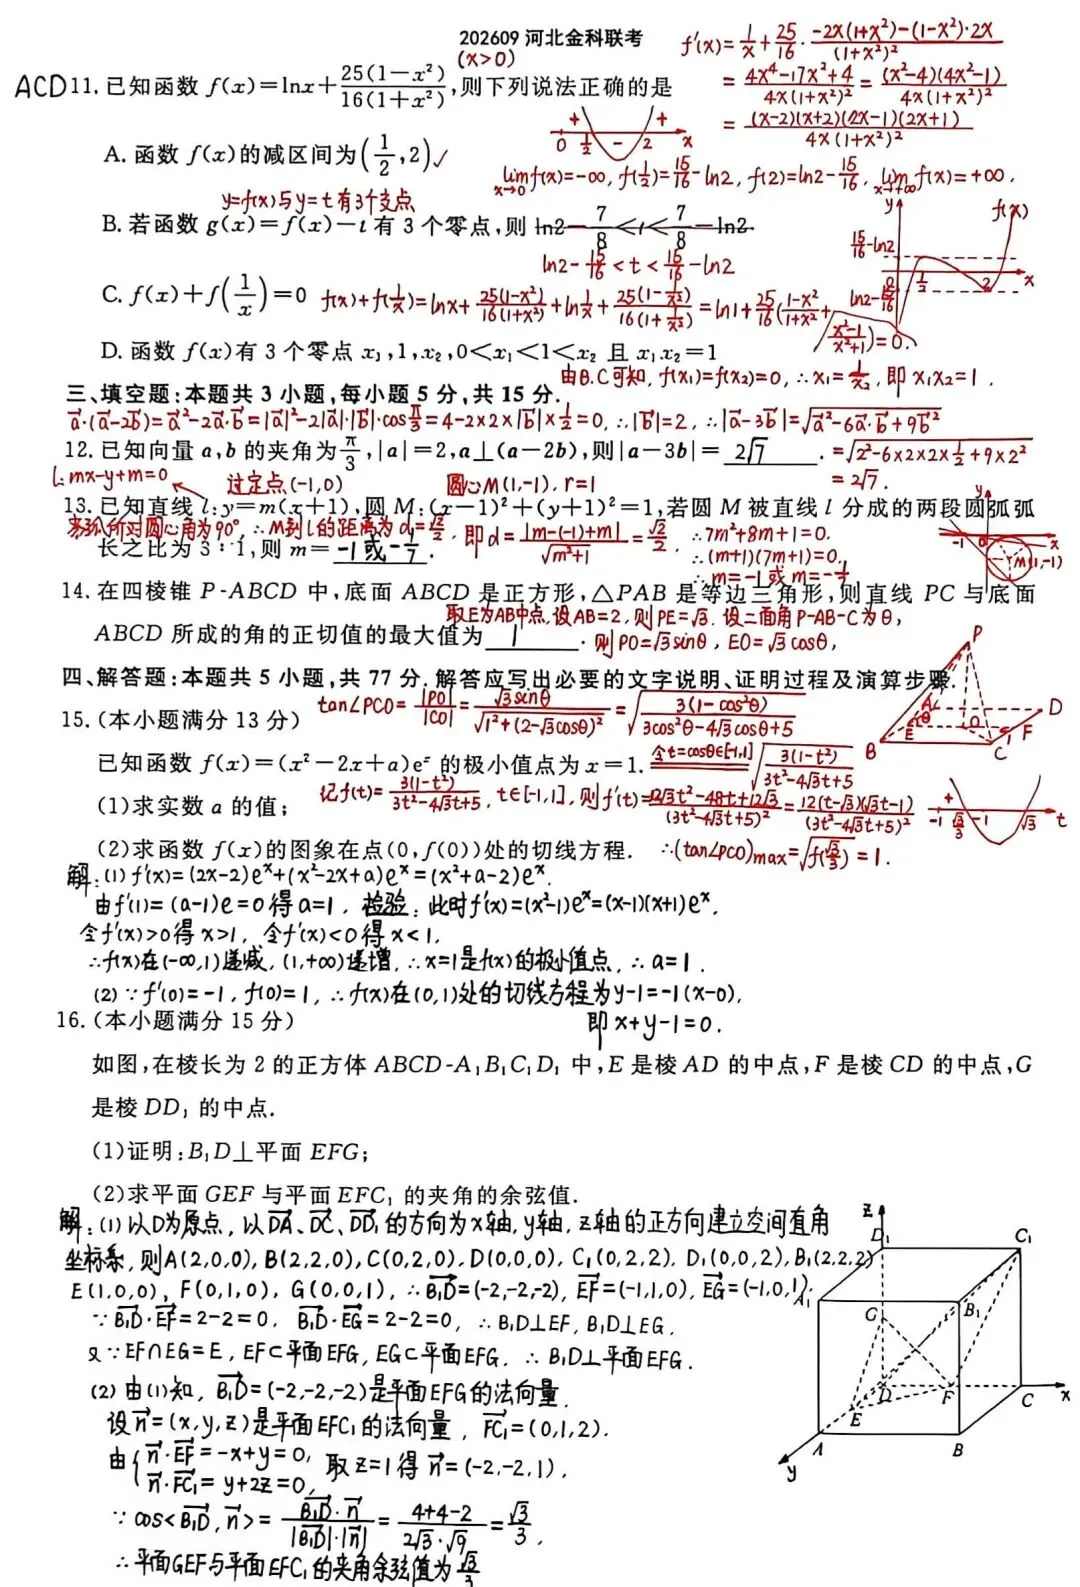 202609 河北金科联考
(x>0)
f'(x)=1/x+25/16·(-2x(1+x²)-(1-x²)·2x)/(1+x²)²
=(4x⁴-17x²+4)/(4x(1+x²)²)=((x²-4)(4x²-1))/(4x(1+x²)²)
=((x-2)(x+2)(2x-1)(2x+1))/(4x(1+x²)²)
ACD 11. 已知函数 f(x)=lnx+25(1-x²)/16(1+x²),则下列说法正确的是
+ + 0 1/2 - 2 x
A. 函数 f(x)的减区间为(1/2,2)✓
lim x→0 f(x)=-∞, f(1/2)=15/16-ln2, f(2)=ln2-15/16, lim x→+∞ f(x)=+∞.
y=f(x)与y=t有3个支点
B. 若函数 g(x)=f(x)-t 有 3 个零点,则 ln2-7/8<t<7/8-ln2
ln2-15/16<t<15/16-ln2
y f(x) 15/16-ln2 0 1/2 2 x ln2-15/16
C. f(x)+f(1/x)=0 f(x)+f(1/x)=lnx+25(1-x²)/16(1+x²)+ln1/x+25(1-1/x²)/16(1+1/x²)=ln1+25/16(1-x²/1+x²+
x²-1/x²+1)=0.
D. 函数 f(x)有 3 个零点 x₁,1,x₂,0<x₁<1<x₂ 且 x₁x₂=1
由B.C可知, f(x₁)=f(x₂)=0, ∴x₁=1/x₂, 即 x₁x₂=1.
三、填空题:本题共 3 小题,每小题 5 分,共 15 分.
a·(a-2b)=a²-2a·b=|a|²-2|a|·|b|·cosπ/3=4-2×2×|b|×1/2=0, ∴|b|=2, ∴|a-3b|=√(a²-6a·b+9b²)
12. 已知向量 a,b 的夹角为π/3,|a|=2,a⊥(a-2b),则|a-3b|= 2√7 . =√(2²-6×2×2×1/2+9×2²)
=2√7.
l: mx-y+m=0 过定点(-1,0) 圆心M(1,-1), r=1
13. 已知直线 l:y=m(x+1),圆 M:(x-1)²+(y+1)²=1,若圆 M 被直线 l 分成的两段圆弧弧
劣弧所对圆心角为90°, ∴M到l的距离为d=√2/2, 即d=|m-(-1)+m|/√(m²+1)=√2/2, ∴7m²+8m+1=0.
长之比为 3∶1,则 m= -1或-1/7 .
∴(m+1)(7m+1)=0,
∴m=-1或m=-1/7
y -1 0 x M(1,-1)
14. 在四棱锥 P-ABCD 中,底面 ABCD 是正方形,△PAB 是等边三角形,则直线 PC 与底面
取E为AB中点,设AB=2,则PE=√3. 设二面角P-AB-C为θ,
ABCD 所成的角的正切值的最大值为 1 . 则PO=√3sinθ, EO=√3cosθ,
四、解答题:本题共 5 小题,共 77 分.解答应写出必要的文字说明、证明过程及演算步骤.
tan∠PCO=|PO|/|CO|=√3sinθ/√(1²+(2-√3cosθ)²)=√(3(1-cos²θ)/(3cos²θ-4√3cosθ+5))
P A D E θ O 1 F B C
15. (本小题满分 13 分)
已知函数 f(x)=(x²-2x+a)eˣ 的极小值点为 x=1. 令t=cosθ∈[-1,1] √(3(1-t²)/(3t²-4√3t+5))
(1)求实数 a 的值; 记f(t)=3(1-t²)/(3t²-4√3t+5), t∈[-1,1], 则f'(t)=(12√3t²-48t+12√3)/(3t²-4√3t+5)²=12(t-√3)(√3t-1)/(3t²-4√3t+5)²
+ -1 √3/3 - 1 √3 t
(2)求函数 f(x)的图象在点(0,f(0))处的切线方程. ∴(tan∠PCO)max=√f(√3/3)=1.
解:(1) f'(x)=(2x-2)eˣ+(x²-2x+a)eˣ=(x²+a-2)eˣ.
由f'(1)=(a-1)e=0得a=1. 检验:此时f'(x)=(x²-1)eˣ=(x-1)(x+1)eˣ.
令f'(x)>0得x>1, 令f'(x)<0得x<1.
∴f(x)在(-∞,1)递减, (1,+∞)递增, ∴x=1是f(x)的极小值点, ∴a=1.
(2) ∵f'(0)=-1, f(0)=1, ∴f(x)在(0,1)处的切线方程为y-1=-1(x-0),
即x+y-1=0.
16. (本小题满分 15 分)
如图,在棱长为 2 的正方体 ABCD-A₁B₁C₁D₁ 中,E 是棱 AD 的中点,F 是棱 CD 的中点,G
是棱 DD₁ 的中点.
(1)证明:B₁D⊥平面 EFG;
(2)求平面 GEF 与平面 EFC₁ 的夹角的余弦值.
解:(1) 以D为原点, 以DA、DC、DD₁的方向为x轴, y轴, z轴的正方向建立空间直角
坐标系, 则A(2,0,0), B(2,2,0), C(0,2,0), D(0,0,0), C₁(0,2,2), D₁(0,0,2), B₁(2,2,2)
E(1,0,0), F(0,1,0), G(0,0,1), ∴B₁D=(-2,-2,-2), EF=(-1,1,0), EG=(-1,0,1),
∵B₁D·EF=2-2=0, B₁D·EG=2-2=0, ∴B₁D⊥EF, B₁D⊥EG.
又∵EF∩EG=E, EF⊂平面EFG, EG⊂平面EFG. ∴B₁D⊥平面EFG.
(2) 由(1)知, B₁D=(-2,-2,-2)是平面EFG的法向量.
设n=(x,y,z)是平面EFC₁的法向量, FC₁=(0,1,2).
由{n·EF=-x+y=0,
n·FC₁=y+2z=0, 取z=1得n=(-2,-2,1).
∵cos<B₁D,n>=B₁D·n/|B₁D|·|n|=(4+4-2)/(2√3·√9)=√3/3,
∴平面GEF与平面EFC₁的夹角余弦值为√3/3
z D₁ C₁ A₁ B₁ G D F C x E A B y